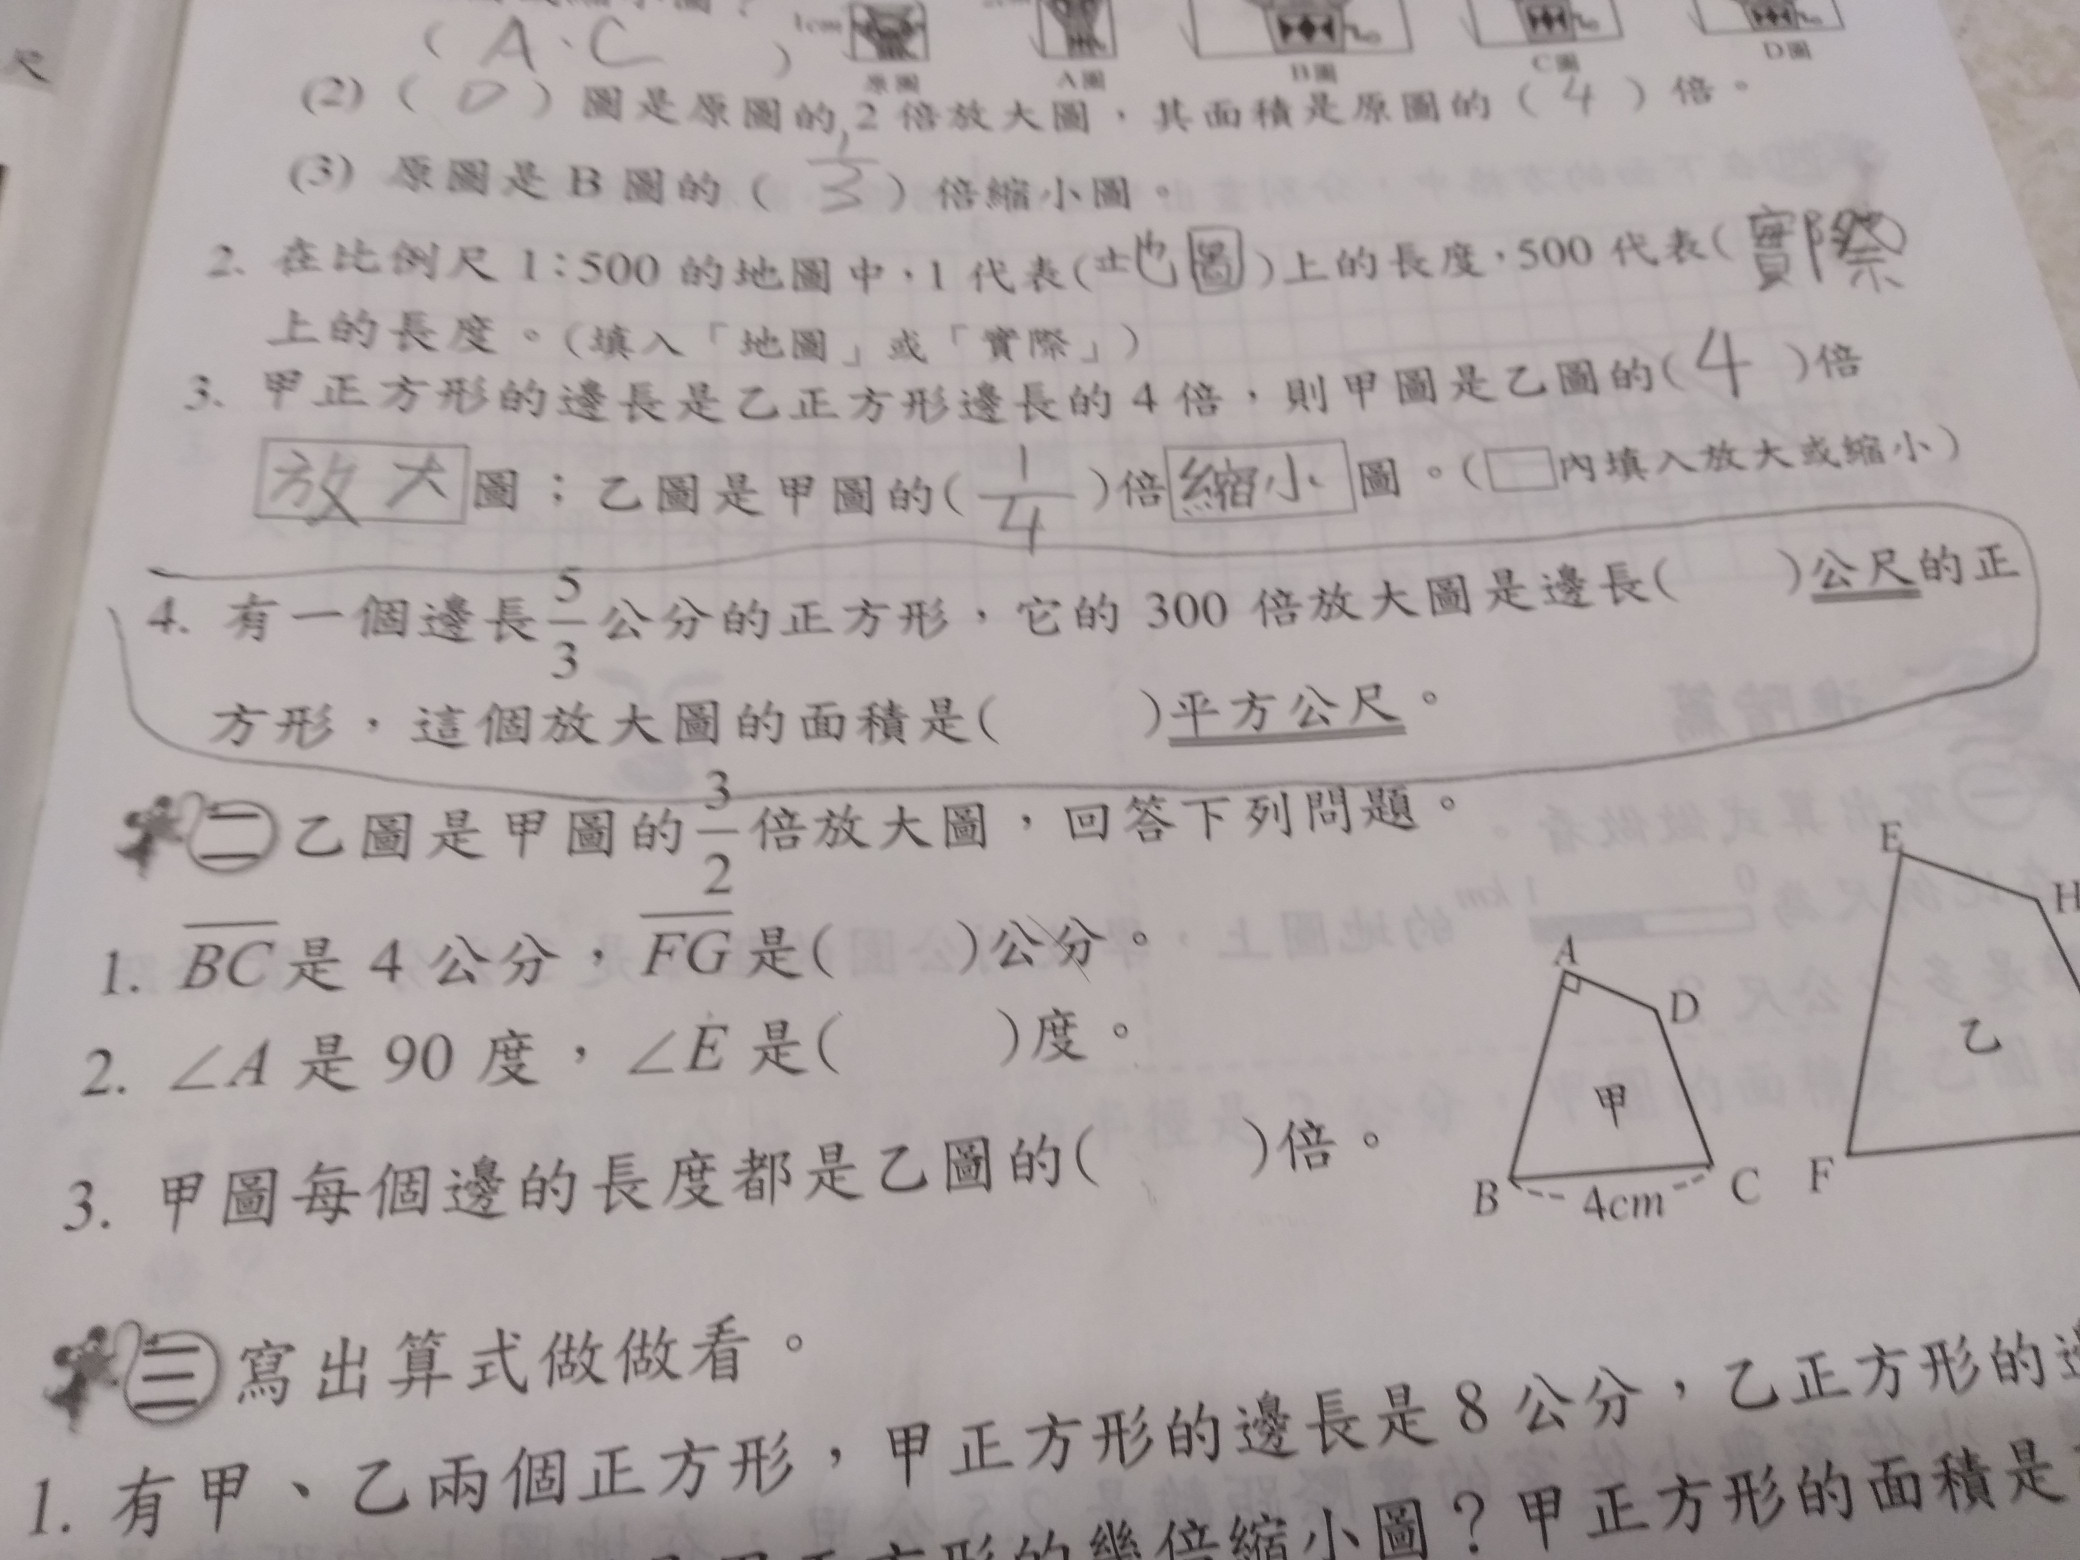 (A、C)
1cm
原圖 A圖 B圖 C圖 D圖
(2)(D)圖是原圖的2倍放大圖,其面積是原圖的(4)倍。
(3) 原圖是B圖的(1/3)倍縮小圖。
2. 在比例尺1:500的地圖中,1代表(地圖)上的長度,500代表(實際)
上的長度。(填入「地圖」或「實際」)
3. 甲正方形的邊長是乙正方形邊長的4倍,則甲圖是乙圖的(4)倍
放大圖;乙圖是甲圖的(1/4)倍縮小圖。(□內填入放大或縮小)
4. 有一個邊長5/3公分的正方形,它的300倍放大圖是邊長( )公尺的正
方形,這個放大圖的面積是( )平方公尺。
二 乙圖是甲圖的3/2倍放大圖,回答下列問題。
1. BC是4公分,FG是( )公分。
2. ∠A是90度,∠E是( )度。
3. 甲圖每個邊的長度都是乙圖的( )倍。
A
D
甲
B
4cm
C
E
H
乙
F
三 寫出算式做做看。
1. 有甲、乙兩個正方形,甲正方形的邊長是8公分,乙正方形的邊
方形的幾倍縮小圖?甲正方形的面積是
尺